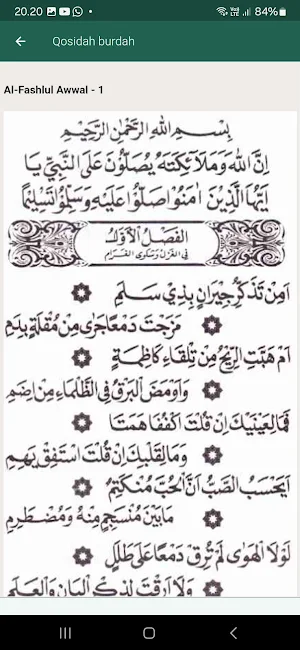 20.20
84%
Qosidah burdah
Al-Fashlul Awwal - 1
بِسْمِ اللهِ الرَّحْمٰنِ الرَّحِيْمِ
اِنَّ اللهَ وَمَلَائِكَتَهُ يُصَلُّوْنَ عَلَى النَّبِيِّ يَا
اَيُّهَا الَّذِيْنَ اٰمَنُوْا صَلُّوْا عَلَيْهِ وَسَلِّمُوْا تَسْلِيْمًا
الفَصْلُ الْأَوَّلُ
فِى الغَزَلِ وَشَكْوَى الغَرَامِ
اَمِنْ تَذَكُّرِ جِيْرَانٍ بِذِيْ سَلَمٍ
مَزَجْتَ دَمْعًا جَرٰى مِنْ مُقْلَةٍ بِدَمٍ
اَمْ هَبَّتِ الرِّيْحُ مِنْ تِلْقَاءِ كَاظِمَةٍ
وَاَوْمَضَ الْبَرْقُ فِى الظَّلْمَاءِ مِنْ اِضَمٍ
فَمَا لِعَيْنَيْكَ اِنْ قُلْتَ اكْفُفَا هَمَتَا
وَمَا لِقَلْبِكَ اِنْ قُلْتَ اسْتَفِقْ يَهِمِ
اَيَحْسَبُ الصَّبُّ اَنَّ الْحُبَّ مُنْكَتِمٌ
مَا بَيْنَ مُنْسَجِمٍ مِنْهُ وَمُضْطَرِمِ
لَوْلَا الْهَوٰى لَمْ تُرِقْ دَمْعًا عَلٰى طَلَلٍ
وَلَا اَرِقْتَ لِذِكْرِ الْبَانِ وَالْعَلَمِ